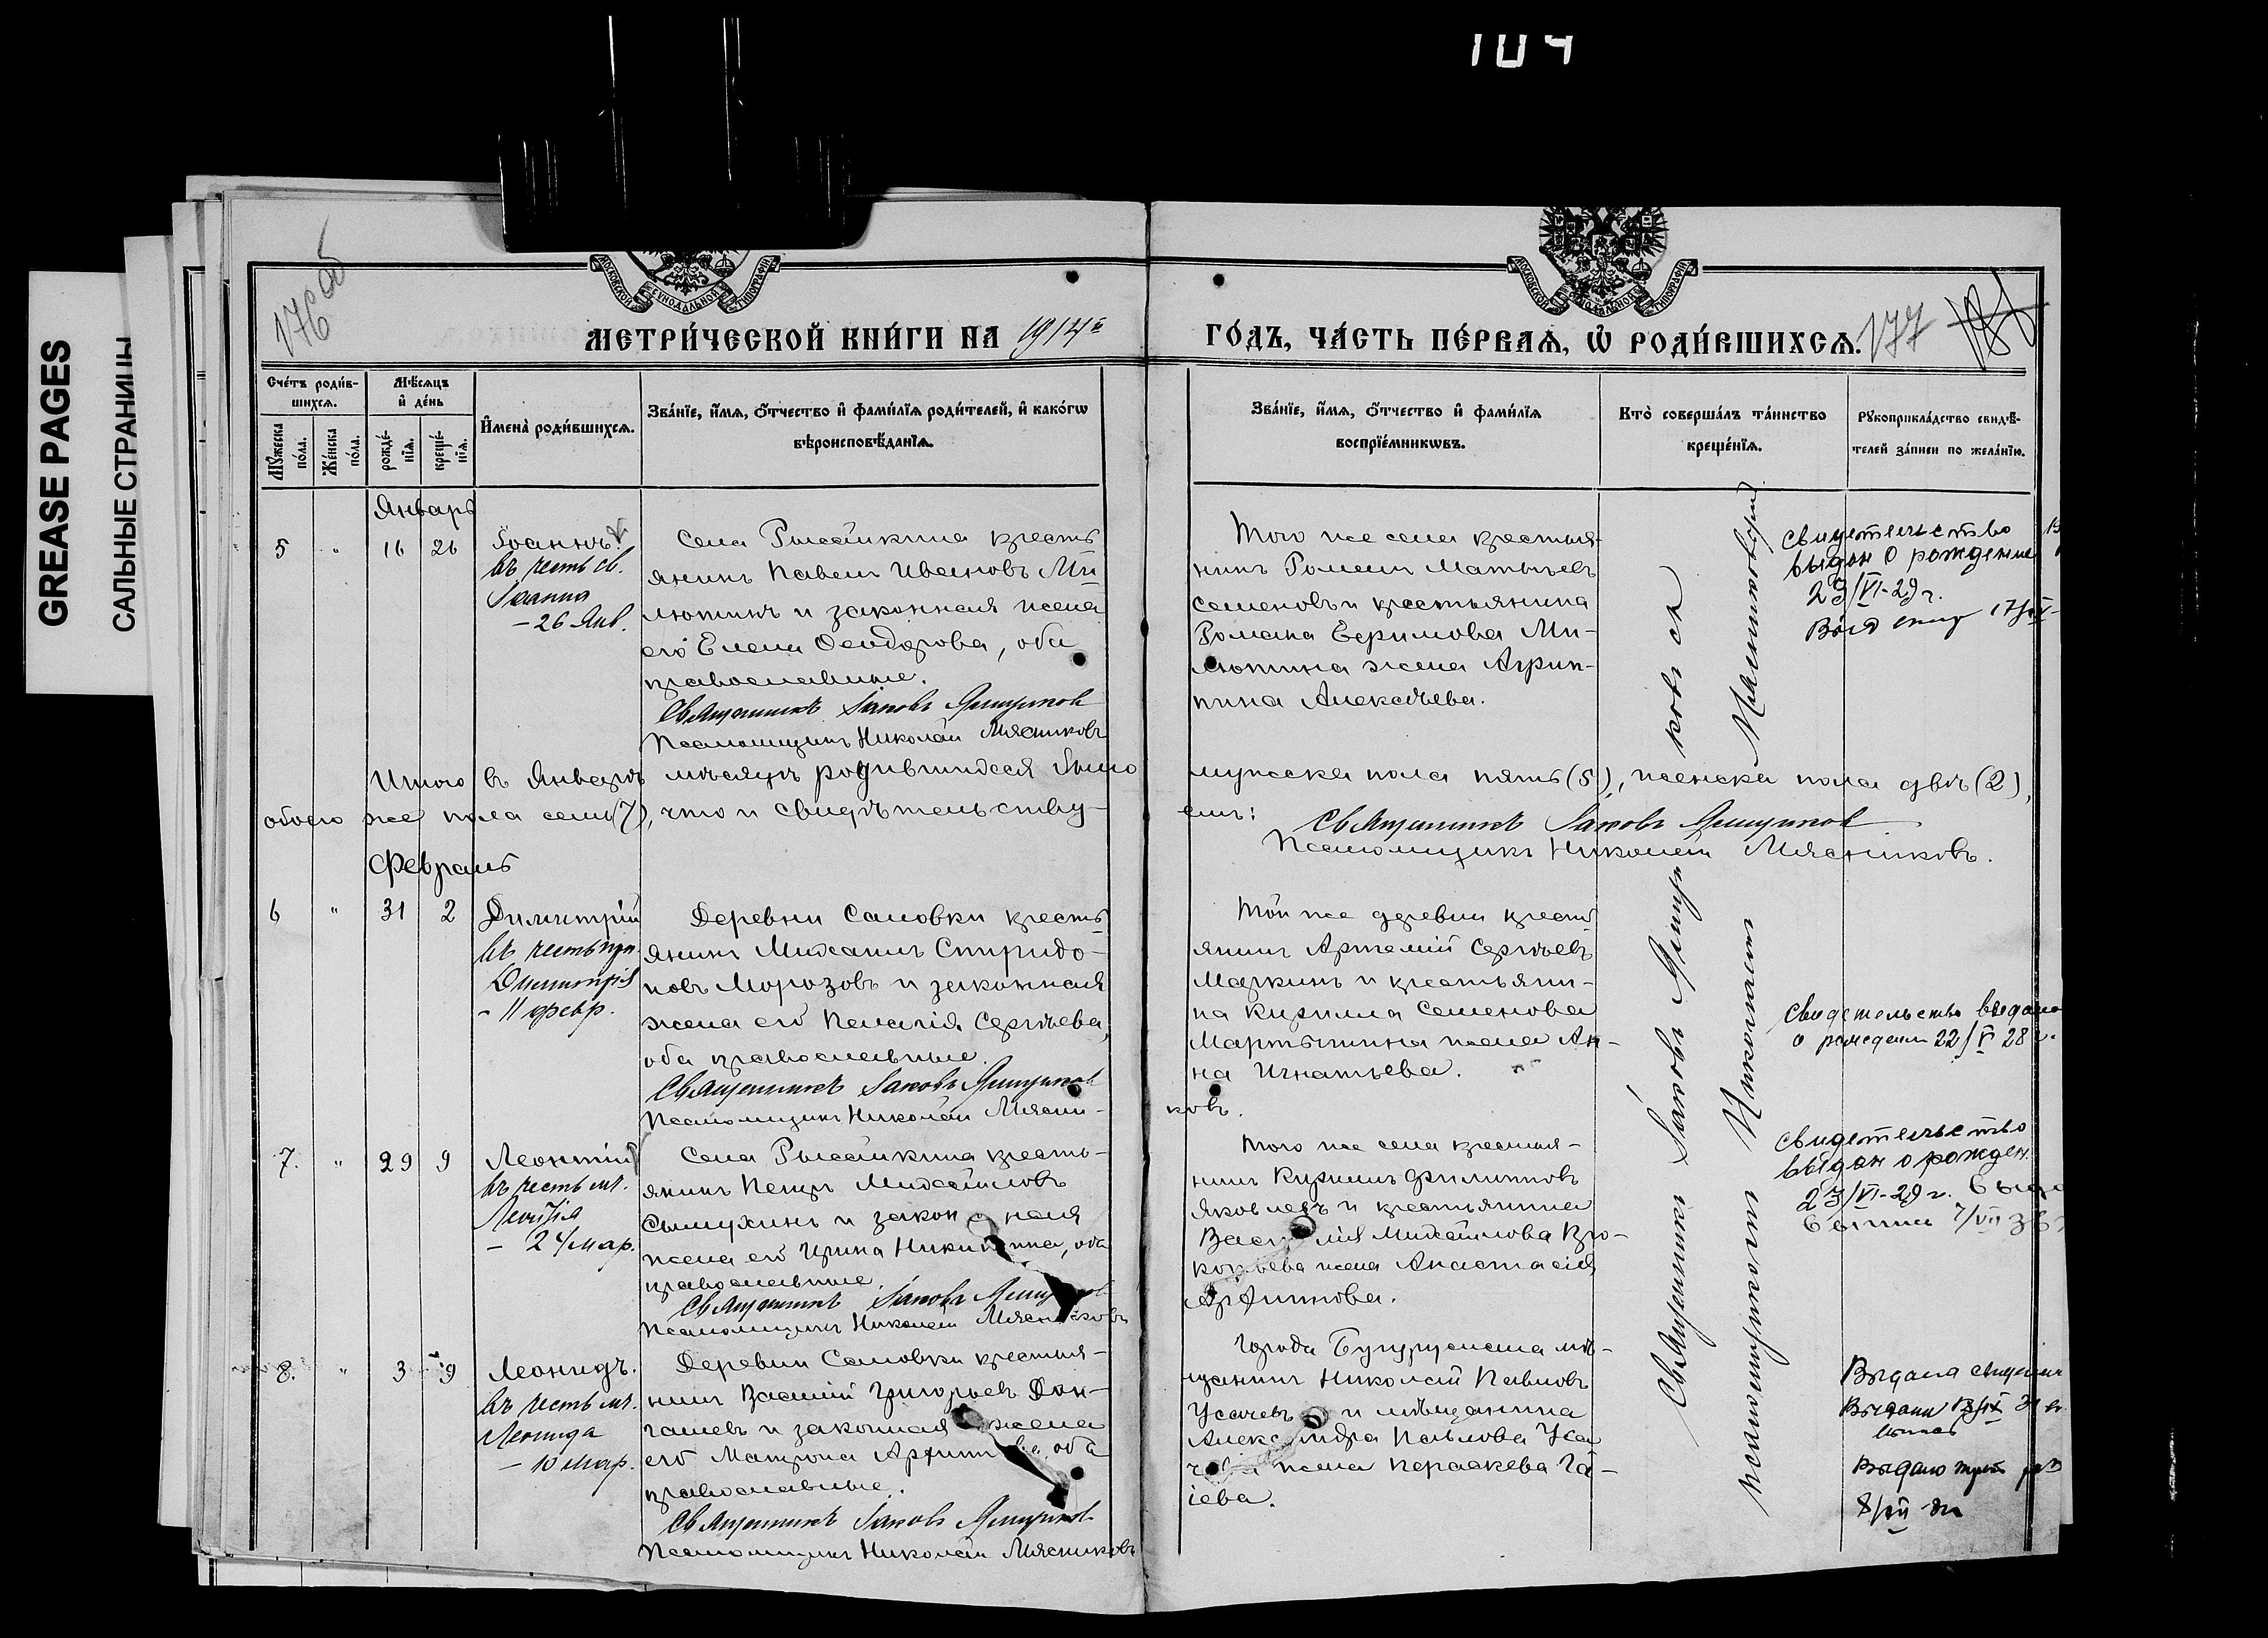 104
GREASE PAGES
САЛЬНЫЕ СТРАНИЦЫ
176 об
МЕТРИ́ЧЕСКОЙ КНИ́ГИ НА 1914й
ГО́ДЪ, ЧА́СТЬ ПЕ́РВАЯ, Ѿ РОДИ́ВШИХСЯ.
177
МОСКОВСКОЙ СѴНОДАЛЬНОЙ ТИПОГРАФІИ
МОСКОВСКОЙ СѴНОДАЛЬНОЙ ТИПОГРАФІИ
Сче́тъ роди́в-
шихся.
Мѣ́сяцъ
и҆ де́нь
Му́жеска по́ла.
Же́нска по́ла.
рожде́-
нїя.
креще́-
нїя.
И҆мена̀ роди́вшихся.
Зва́нїе, и҆́мя, ѻ҆́тчество и҆ фами́лїя роди́телей, и҆ како́гѡ
вѣроисповѣ́данїя.
Зва́нїе, и҆́мя, ѻ҆́тчество и҆ фами́лїя
воспрїе́мникѡвъ.
Кто̀ соверша́лъ та́инство
креще́нїя.
Рукоприкла́дство свидѣ́-
телей за́писи по жела́нїю.
Январь
5 " 16 26
Іоаннъ.
въ честь св.
Іоанна
- 26 Янв.
Села Рысайкина кресть
янинъ Павелъ Ивановъ Ми
лютинъ и законная жена
его Елена Ѳеодорова, оба
православные.
Священникъ Іаковъ Ямщиков
Псаломщикъ Николай Мясниковъ
Того же села крестья-
нинъ Романъ Матвѣевъ
Семеновъ и крестьянина
Романа Ефимова Ми-
лютина жена Агрип-
пина Алексѣева.
свидетельство
выдан о рождение
23/VI-29 г.
Итого въ Январѣ мѣсяцѣ родившихся было
мужска пола пять (5), женска пола двѣ (2),
обоего же пола семь (7), что и свидѣтельству-
емъ:
Священникъ Іаковъ Ямщиков
Псаломщикъ Николай Мясниковъ.
Февраль
6 " 31 2
Димитрій
въ честь прп.
Димитрія
- 11 февр.
Деревни Саловки кресть
янинъ Михаилъ Спиридо-
новъ Морозовъ и законная
жена его Пелагія Сергѣева,
оба православные.
Священникъ Іаковъ Ямщиков
Псаломщикъ Николай Мясни-
ковъ.
Той же деревни кресть
янинъ Артемій Сергѣевъ
Маркинъ и крестьяни-
на Кирила Семенова
Мартышина жена Ан-
на Игнатьева.
Свидетельство выдано
о рождении 22/V 28 г.
7. " 29 9
Леонтій
въ честь мч.
Леонтія
- 24 мар.
Села Рысайкина кресть-
янинъ Петръ Михайловъ
и законная
жена его Ирина Никитина, оба
православные.
Священникъ Іаковъ Ямщиков
Псаломщикъ Николай Мясниковъ
Того же села крестья-
нинъ Кирилъ Филипповъ
Яковлевъ и крестьянина
Василія Михайлова Про-
кофьева жена Анастасія
Архипова.
свидетельство
выдан о рожден.
23/VI-29 г.
8. " 3 9
Леонидъ.
въ честь мч.
Леонида
- 10 мар.
Деревни Саловки крестья-
нинъ Василій Григорьевъ Дон-
гашевъ и законная жена
его Матрона Архипова, оба
православные.
Священникъ Іаковъ Ямщиков
Псаломщикъ Николай Мясниковъ
Города Бугуруслана мѣ-
щанинъ Николай Павловъ
Усачевъ и мѣщанина
Александра Павлова Уса
чева жена Параскева Га-
іева.
Выдано
8/XII
Священникъ Іаковъ Ямщиковъ съ
псаломщикомъ Николаемъ Мясниковымъ